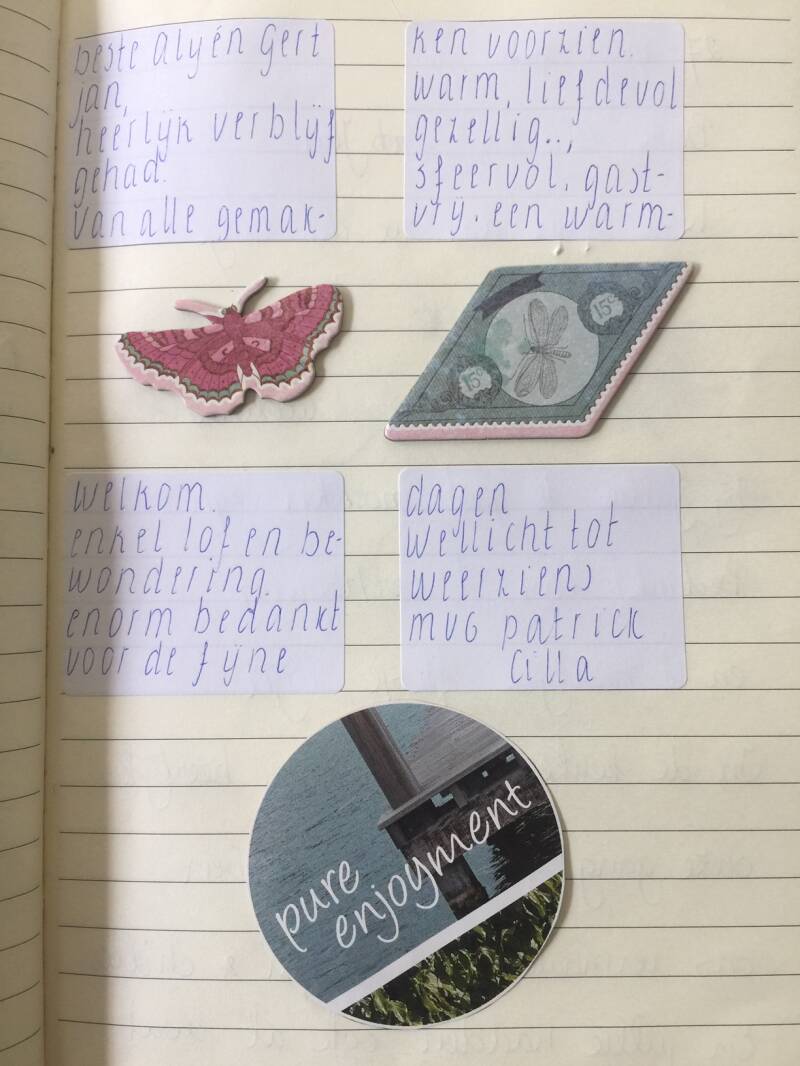 beste alyén Gert
jan,
heerlijk verblijf
gehad.
van alle gemak-
ken voorzien.
warm, liefdevol
gezellig..,
sfeervol, gast-
vrij. een warm-
15c
15c
welkom.
enkel lof en be-
wondering.
enorm bedankt
voor de fijne
dagen
wellicht tot
weerziens
mvG patrick
Cilla
pure
enjoyment